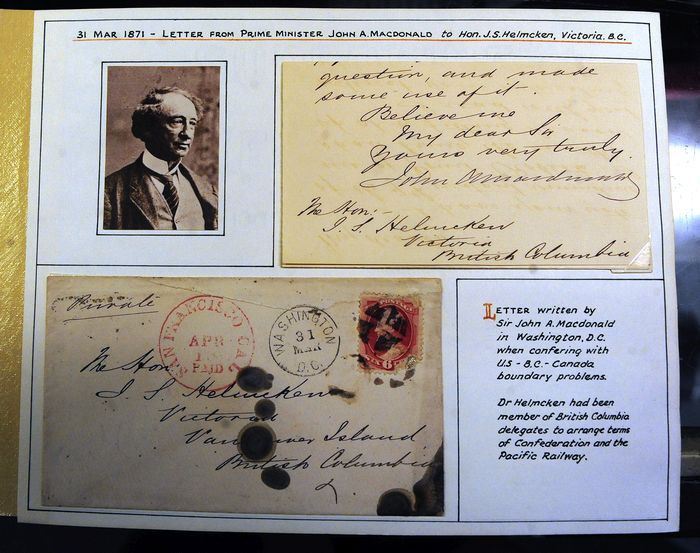 31 MAR 1871 - LETTER FROM PRIME MINISTER JOHN A. MACDONALD to HON. J.S. Helmcken, VICTORIA. B.C.
question, and made
some use of it.
Believe me
My dear Sir
Yours very truly.
John A Macdonald
The Hon:-
J. S. Helmcken
Victoria
British Columbia
Private
SAN FRANCISCO CAL
APR
PAID
WASHINGTON
31
MAR
D.C.
POSTAGE
6
The Hon
J. S. Helmcken
Victoria
Vancouver Island
British Columbia
LETTER written by
Sir John A. Macdonald
in Washington, D.C.
when confering with
U.S - B.C. - Canada
boundary problems.
Dr Helmcken had been
member of British Columbia
delegates to arrange terms
of Confederation and the
Pacific Railway.